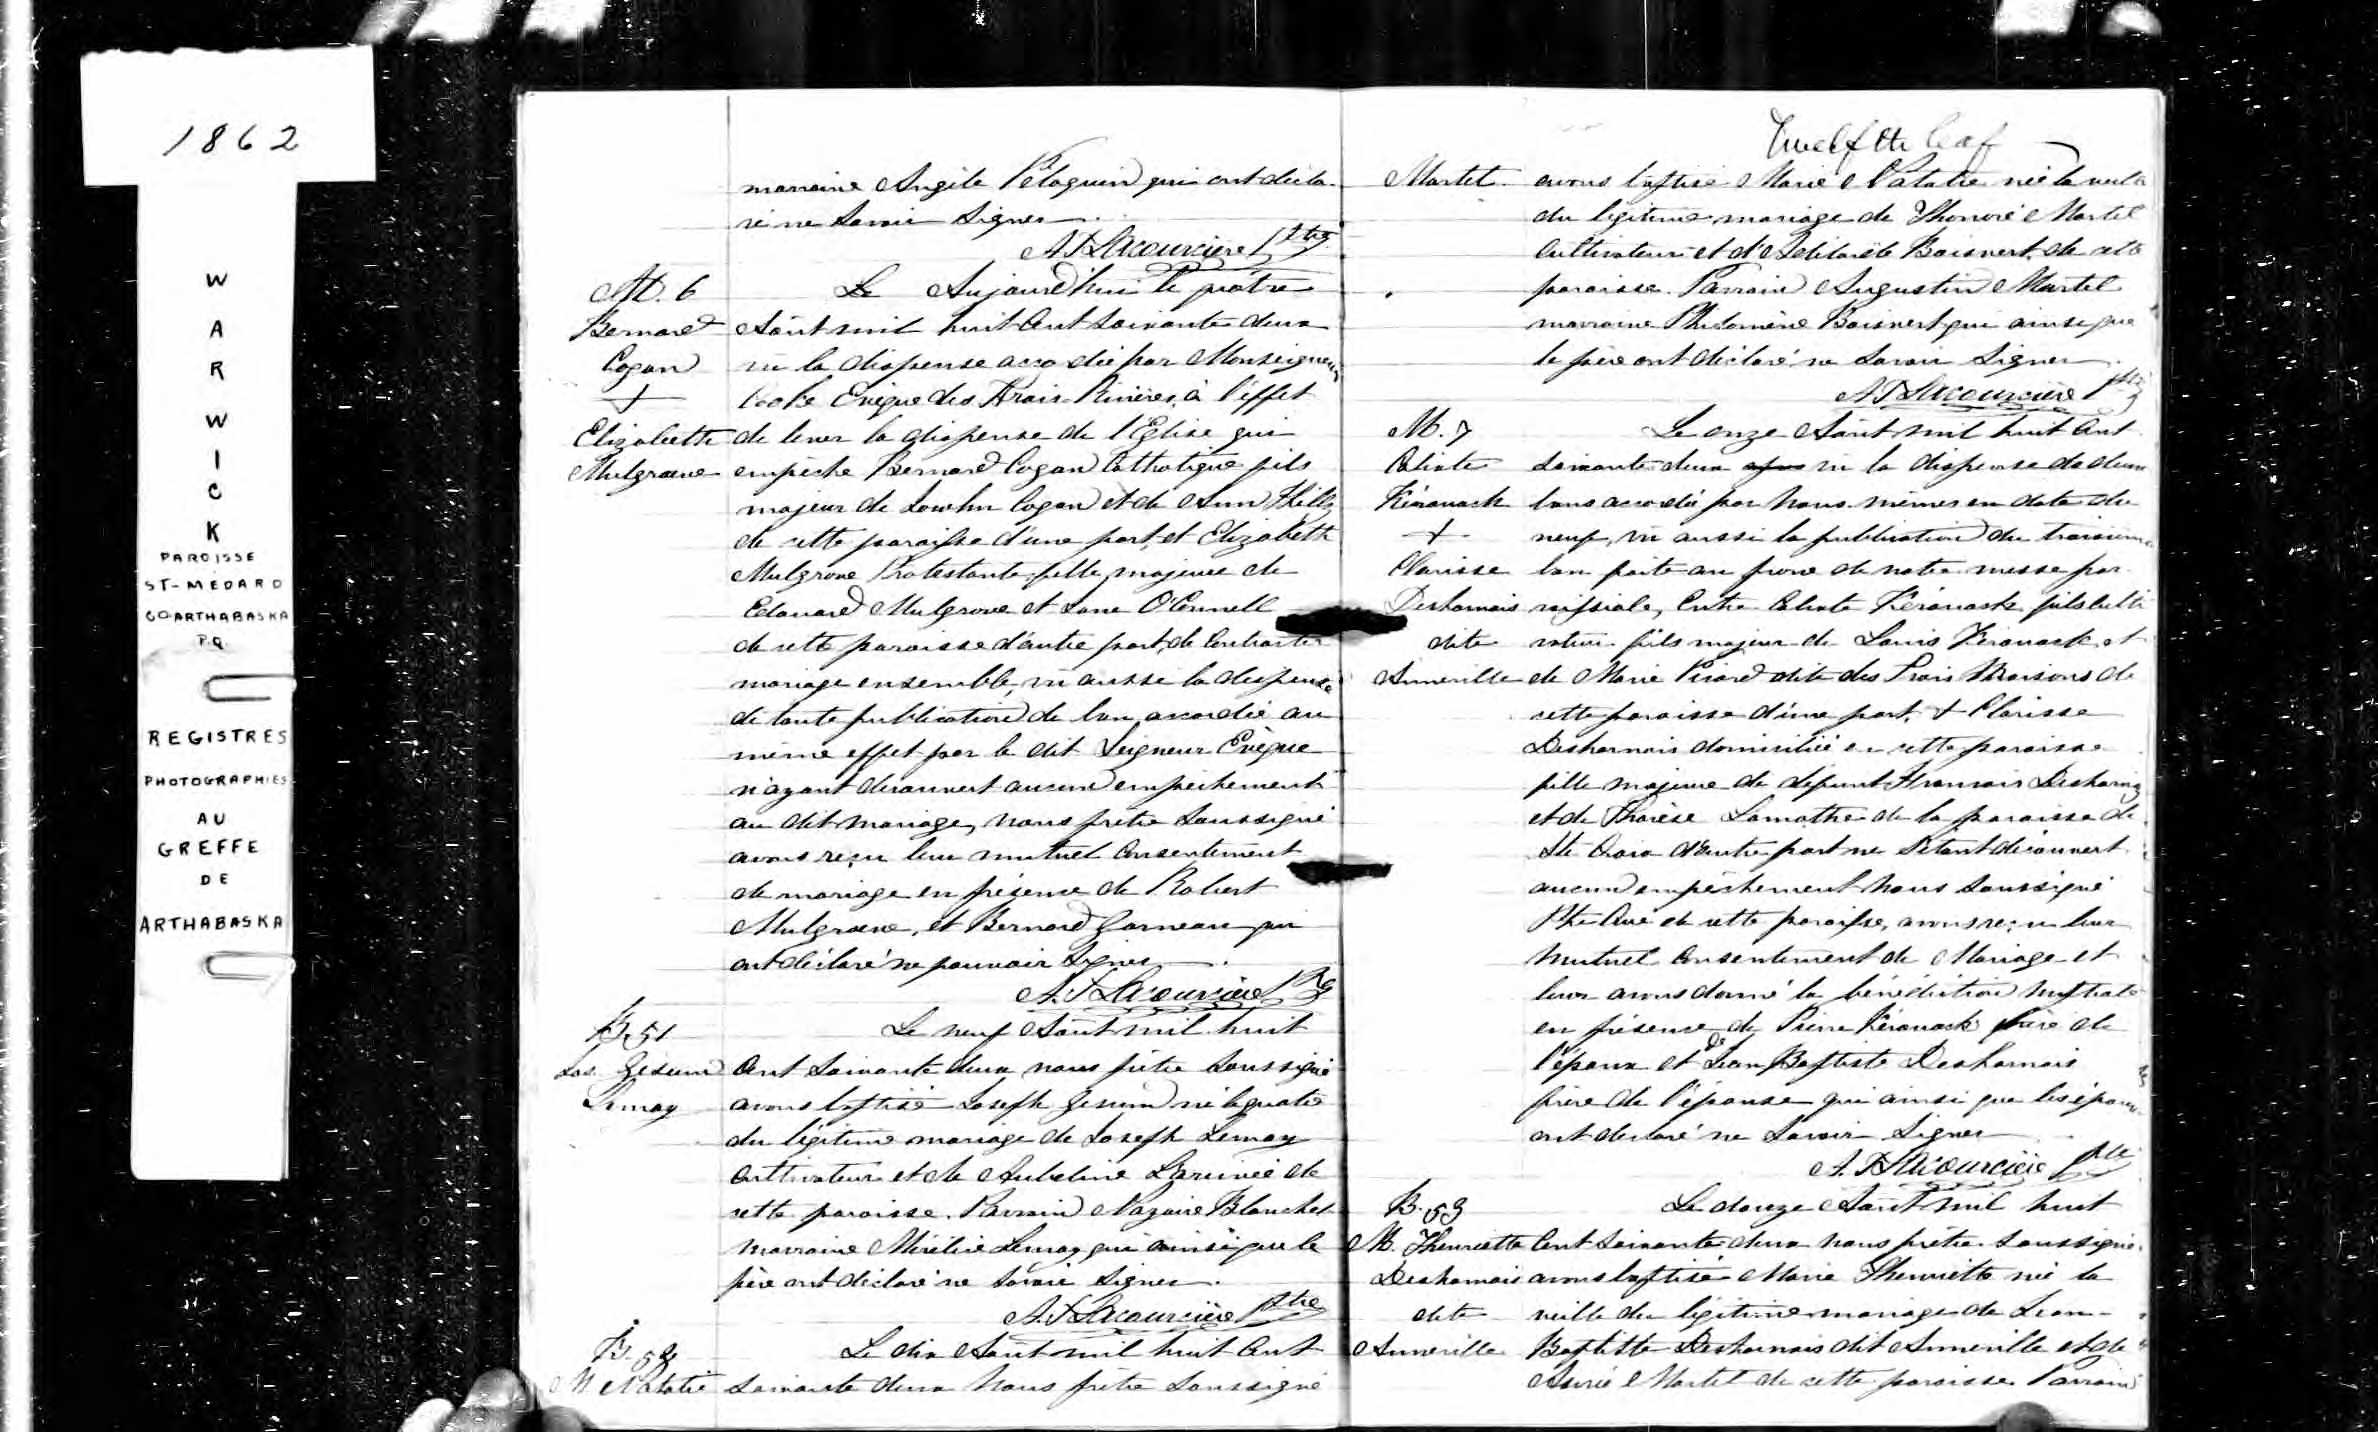 1862
WARWICK
PAROISSE
ST-MEDARD
CO ARTHABASKA
P.Q.
REGISTRES
PHOTOGRAPHIES
AU
GREFFE
DE
ARTHABASKA
marraine Angèle Péloquin qui ont décla-
ré ne savoir signer
A.T. Lacourcière Ptre
M. 6
Bernard
Cogan
+
Elizabeth
Mulgrove
Le Aujourd'hui le quatre
Août mil huit cent soixante deux
vu la dispense accordée par Monseigneur
Cooke Evêque des Trois Rivières, à l'effet
de lever la dispense de l'Eglise qui
empêche Bernard Cogan Catholique fils
majeur de Cogan et de Ann
de cette paroisse d'une part, et Elizabeth
Mulgrove Protestante fille majeure de
Edouard Mulgrove et Jane O'Connell
de cette paroisse d'autre part, de contracter
mariage ensemble, vu aussi la dispense
de toute publication de ban accordée au
même effet par le dit Seigneur Evêque
n'ayant découvert aucun empêchement
au dit mariage, nous prêtre soussigné
avons reçu leur mutuel consentement
de mariage en présence de Robert
Mulgrove, et Bernard Garneau qui
ont déclaré ne pouvoir signer
A.T. Lacourcière Ptre
B. 51
Jos. Gésime
Lemay
Le neuf Août mil huit
cent soixante deux nous prêtre soussigné
avons baptisé Joseph né le quatre
du légitime mariage de Joseph Lemay
cultivateur et de Larivée de
cette paroisse. Parrain Nazaire Blanchet
marraine Lemay, qui ainsi que le
père ont déclaré ne savoir signer.
A.T. Lacourcière Ptre
B. 52
M. Natalie
Le dix Août mil huit cent
soixante deux Nous prêtre soussigné
Twelfth leaf
Martel
avons baptisé Marie Natalie née la veille
du légitime mariage de Honoré Martel
cultivateur et d'Adélaïde Boisvert, de cette
paroisse. Parrain Augustin Martel
marraine Philomène Boisvert qui ainsi que
le père ont déclaré ne savoir signer.
A.T. Lacourcière Ptre
M. 7
Calixte
Kérouack
+
Clarisse
Desharnais
dite
Anneville
Le onze Août mil huit cent
soixante deux vu la dispense de deux
bans accordée par Nous-mêmes en date du
neuf, vu aussi la publication du troisième
ban faite au prone de notre messe par-
roissiale, entre Calixte Kérouack fils culti-
vateur fils majeur de Louis Kérouack et
de Marie Picard dite des Trois Maisons de
cette paroisse d'une part, & Clarisse
Desharnais domiciliée en cette paroisse
fille majeure de défunt François Desharnais
et de Thérèse Lamothe de la paroisse de
Ste Croix d'autre part ne s'étant découvert
aucun empêchement Nous soussigné
Ptre Curé de cette paroisse, avons reçu leur
mutuel consentement de Mariage et
leur avons donné la bénédiction nuptiale
en présence de Pierre Kérouack frère de
l'époux et de Jean Baptiste Desharnais
frère de l'épouse qui ainsi que les époux
ont déclaré ne savoir signer
A.T. Lacourcière Ptre
B. 53
M. Henriette
Desharnais
dite
Anneville
Le douze Août mil huit
cent soixante deux nous prêtre soussigné
avons baptisé Marie Henriette née la
veille du légitime mariage de Jean-
Baptiste Desharnais dit Anneville et de
Martel de cette paroisse Parrain